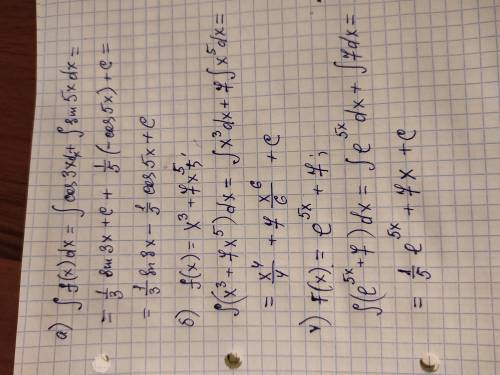 а) ∫ f(x) dx = ∫ cos 3x dx + ∫ sin 5x dx =
= 1/3 sin 3x + C + 1/5 (-cos 5x) + C =
= 1/3 sin 3x - 1/5 cos 5x + C
б) f(x) = x³ + 7x⁵;
∫(x³ + 7x⁵) dx = ∫ x³ dx + 7 ∫ x⁵ dx =
= x⁴/4 + 7 x⁶/6 + C
f(x) = e^5x + 7;
∫(e^5x + 7) dx = ∫ e^5x dx + ∫ 7 dx =
= 1/5 e^5x + 7x + C